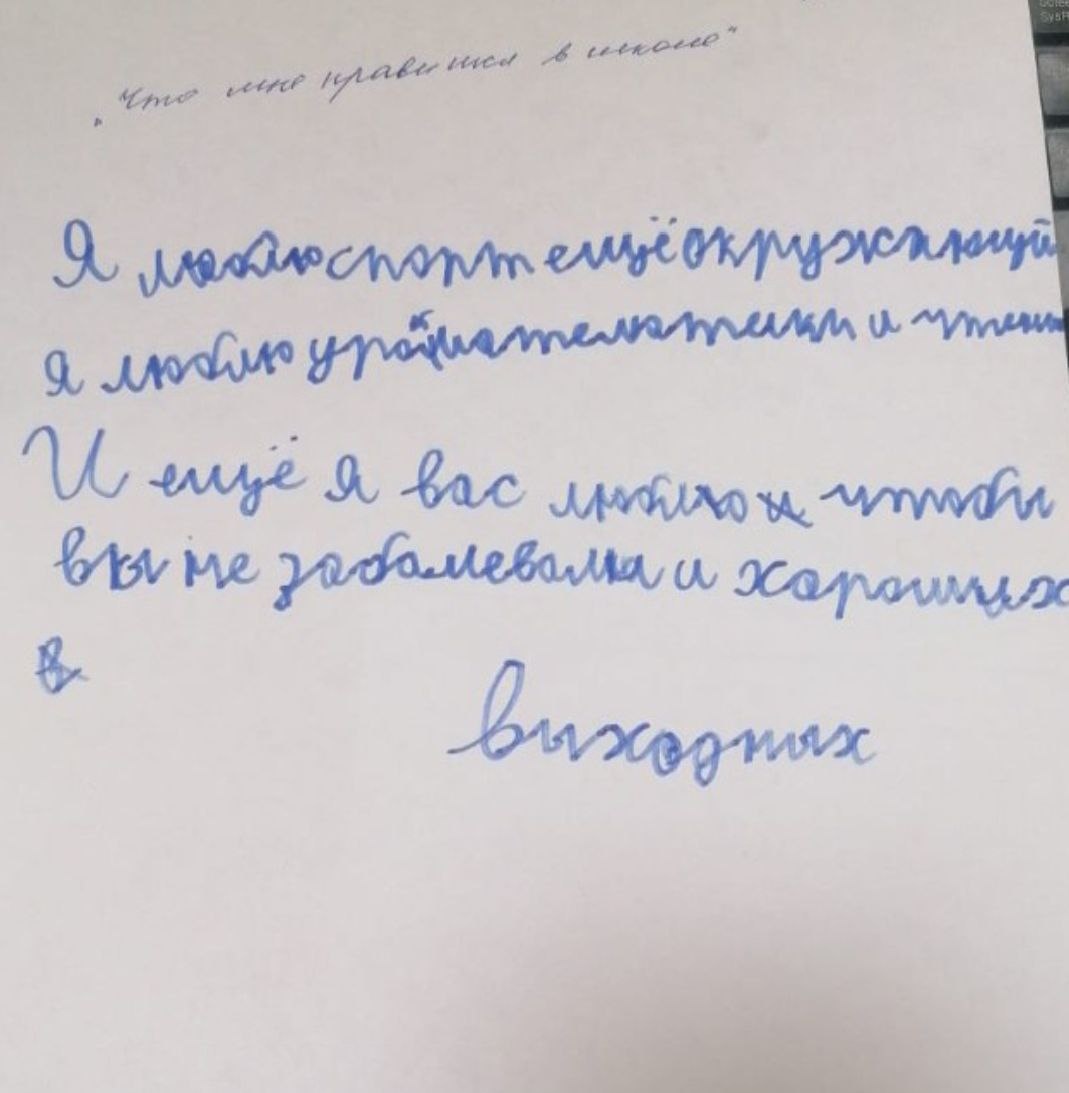 „Что мне нравится в школе"
Я люблю спорт ещё окружающий
я люблю урок математики и чтени
И ещё я вас люблю и чтобы
вы не заболевали и хороших
в
выходных